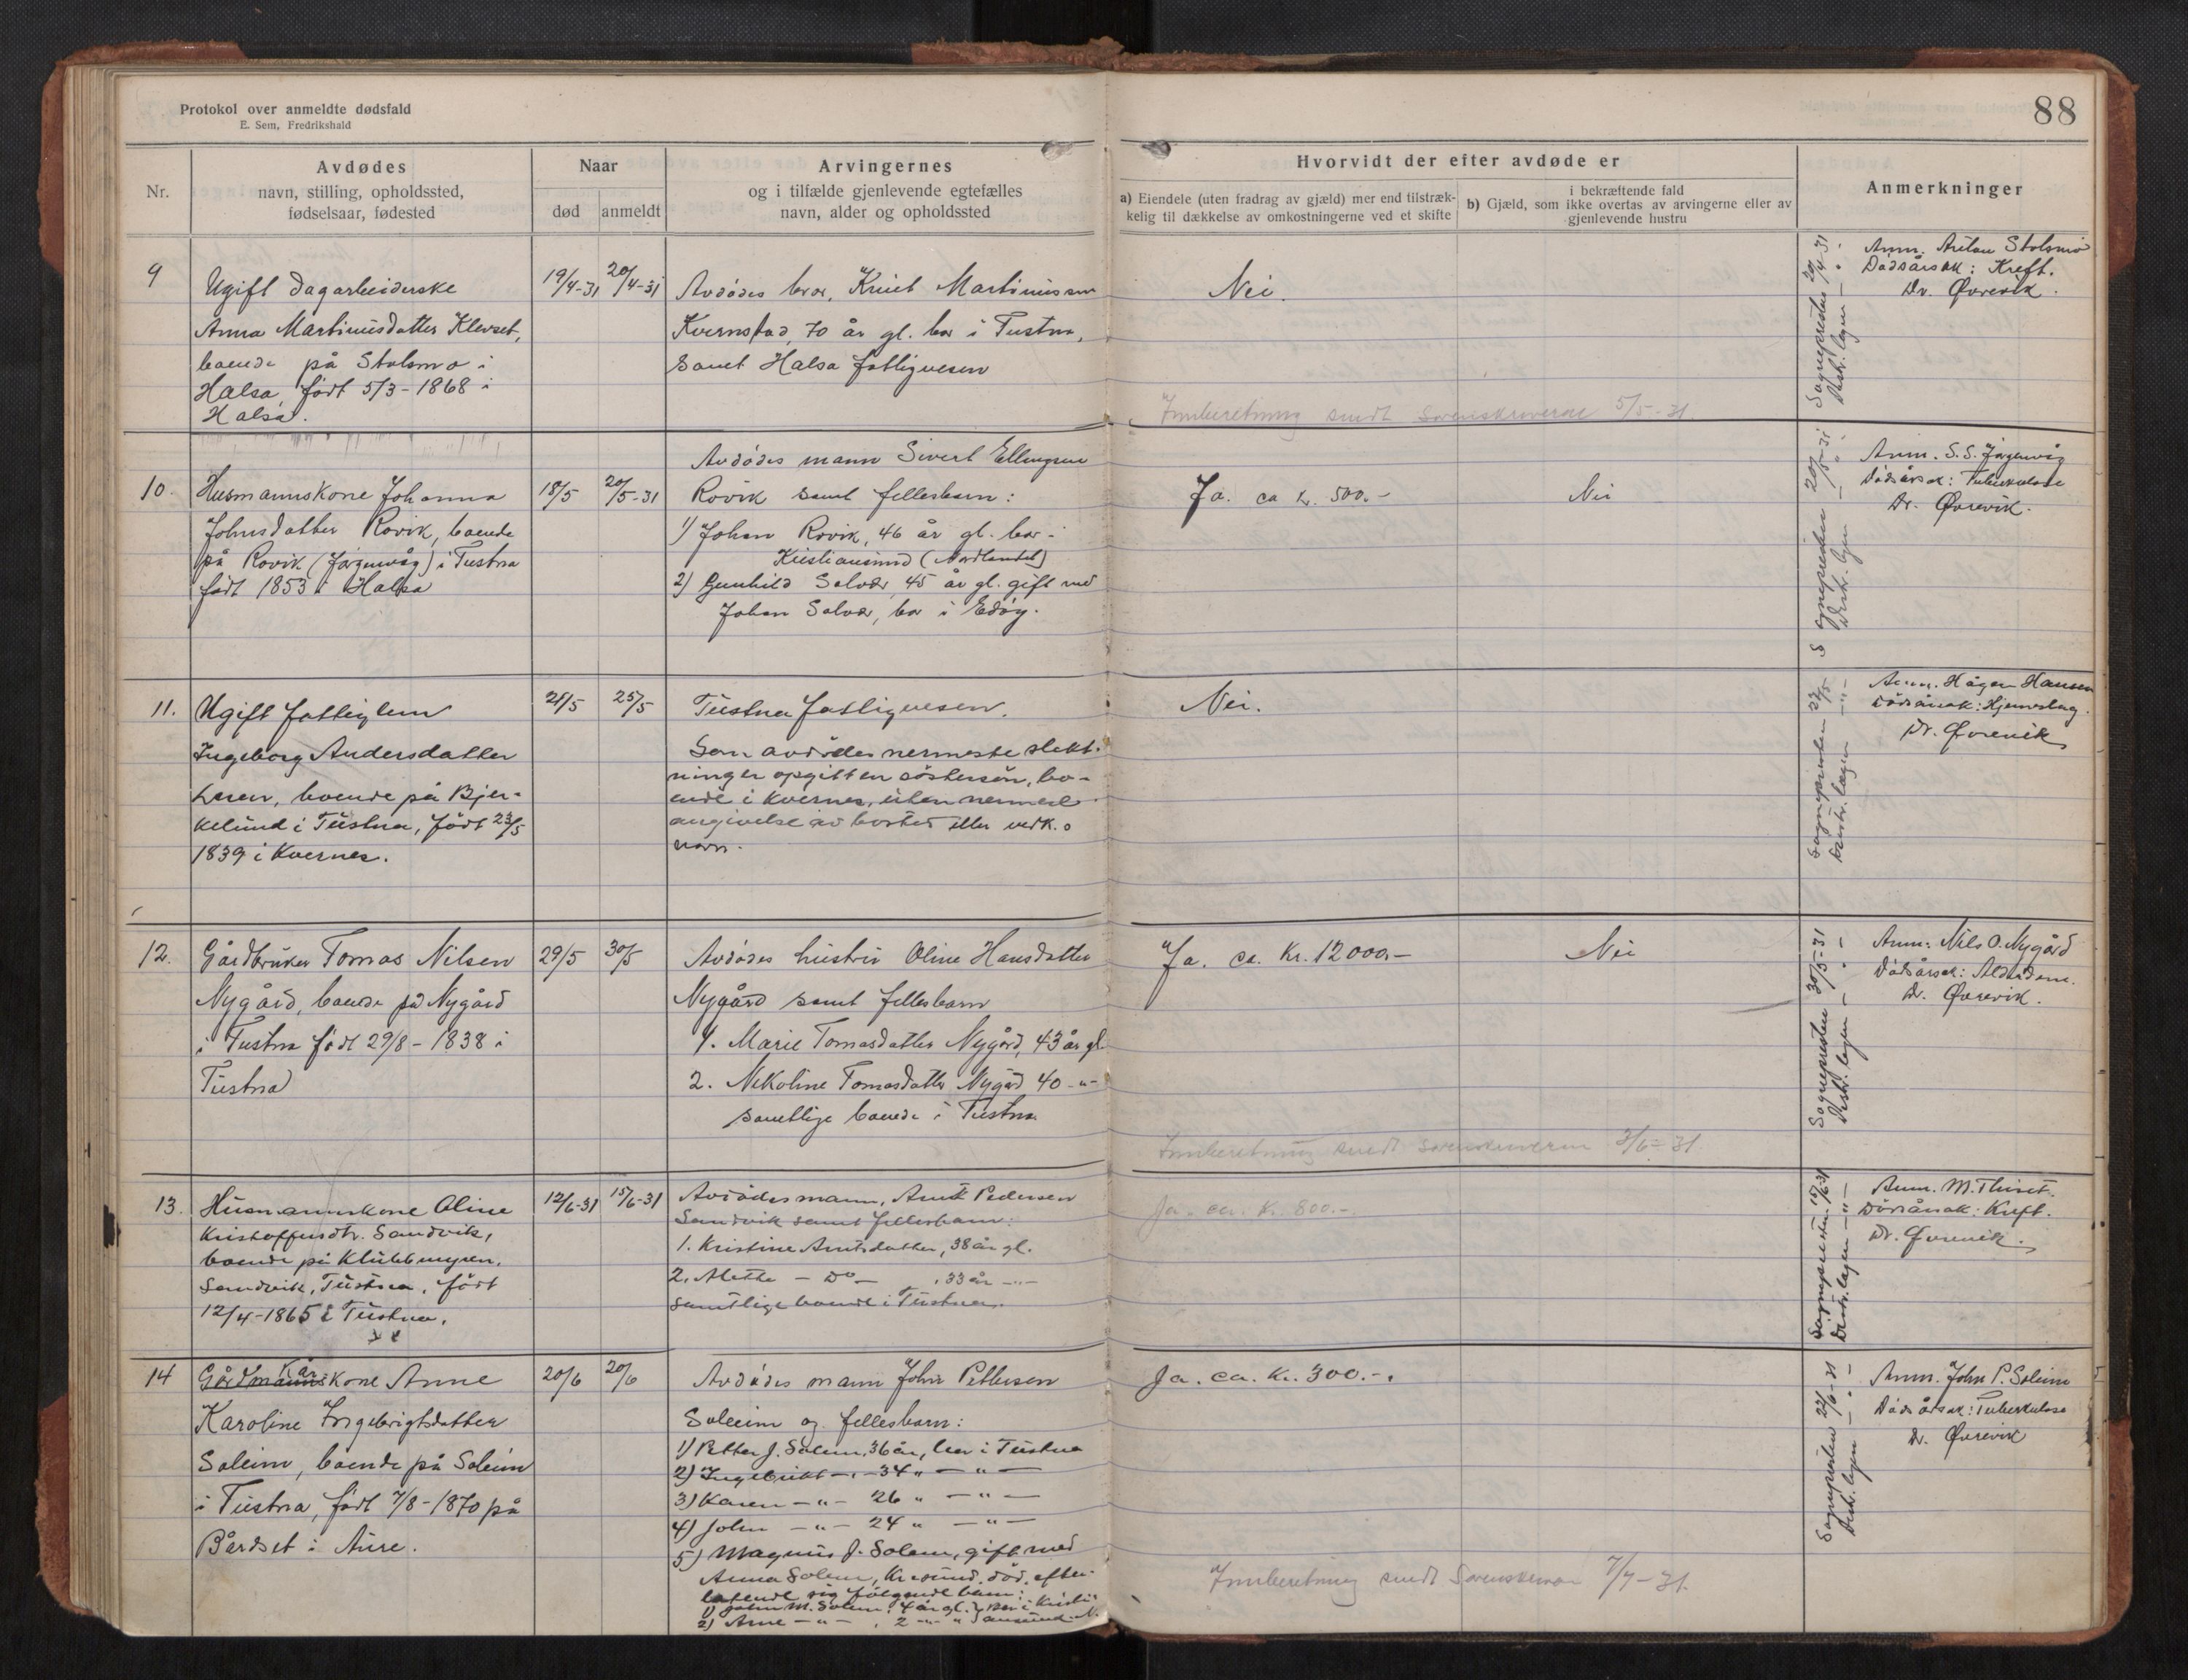 Protokol over anmeldte dødsfald
E. Sem, Fredrikshald
88
Nr.
Avdødes
navn, stilling, opholdssted,
fødselsaar, fødested
Naar
død
anmeldt
Arvingernes
og i tilfælde gjenlevende egtefælles
navn, alder og opholdssted
Hvorvidt der efter avdøde er
a) Eiendele (uten fradrag av gjæld) mer end tilstræk-
kelig til dækkelse av omkostningerne ved et skifte
i bekræftende fald
b) Gjæld, som ikke overtas av arvingerne eller av
gjenlevende hustru
Anmerkninger
9
Ugift dagarbeiderske
Anna Martinusdatter Klevset,
boende på Stolsmo i
Halsa, født 5/3-1868 i
Halsa.
19/4-31
20/4-31
Avdødes bror, Knut Martinussen
Kvernstad, 70 år gl. bor i Tustna,
samt Halsa fattigvesen
Nei.
Innberetning sendt Sorenskriveren 5/5-31.
Sognepresten 20/4-31
Distr. legen - " -
Anm. Stolsmo
Dødsårsak: Kreft.
Dr. Øvrevik.
10.
Husmannskone Johanna
Johnsdatter Rovik, boende
på Rovik (Jørgenvåg) i Tustna
født 1853 i Halsa
18/5
20/5-31
Avdødes mann Sivert Ellingsen
Rovik samt fellesbarn:
1) Johan Rovik, 46 år gl. bor i
Kristiansund (Nordlandet)
2) Gunhild Solvær, 45 år gl. gift med
Johan Solvær, bor i Edøy.
Ja. ca kr. 500.-
Nei
Sognepresten 20/5-31
Distr. legen - " -
Anm. S. S. Jørgenvåg
Dødsårsak: Tuberkulose
Dr. Øvrevik.
11.
Ugift fattiglem
Ingeborg Andersdatter
boende på Bjer-
kelund i Tustna, født 23/5
1839 i Kvernes.
21/5
25/5
Tustna fattigvesen.
Som avdødes nermeste slekt-
ninger opgitt en søstersøn, bo-
ende i Kvernes, uten nermere
angivelse av bosted eller vedk.s
navn.
Nei.
Sognepresten 27/5
Distr. lægen - " -
Anm. Hågen Hansen
Dødsårsak: Hjerneslag.
Dr. Øvrevik
12.
Gårdbruker Tomas Nilsen
Nygård, boende på Nygård
i Tustna født 29/8-1838 i
Tustna
29/5
30/5
Avdødes hustru Oline Hansdatter
Nygård samt fellesbarn
1. Marie Tomasdatter Nygård, 43 år gl.
2. Nikoline Tomasdatter Nygård 40 -"-
samtlige boende i Tustna
Ja. ca. Kr. 12000.-
Nei
Innberetning sendt sorenskriveren 3/6-31.
Sognepresten 30/5-31
Distr. legen - " -
Anm: Nils O. Nygård
Dødsårsak: Alderdom.
Dr. Øvrevik.
13.
Husmannskone Oline
Kristoffersdtr. Sandvik,
boende på Klubbmyren,
Sandvik, Tustna, født
12/4-1865 i Tustna.
12/6-31
15/6-31
Avdødes mann, Arnt Pedersen
Sandvik samt fellesbarn:
1. Kristine Arntsdatter, 38 år gl.
2. Alette - Do - , 33 år -"-
samtlige boende i Tustna.
Ja. ca. kr. 800.-
Sognepresten 15/6-31
Distr. legen -"-
Anm. M. Thiset.
Dødsårsak: Kreft.
Dr. Øvrevik.
14
Gårdmannskone Anne
Kår
Karoline Ingebrigtsdatter
Soleim, boende på Soleim
i Tustna, født 7/8-1870 på
Bårdset i Aure.
20/6
20/6
Avdødes mann John Pettersen
Soleim og fellesbarn:
1) Petter J. Solem, 36 år, bor i Tustna
2) Ingebrikt -"- 34 " - " -
3) Karen -"- 26 " - " -
4) John -"- 24 " - " -
5) Magnus J. Solem, gift med
Anna Solem, Kr.sund. død, efter-
latende sig følgende barn:
1) John M. Solem, 4 år gl. } bor i Kristi-
2) Arne -"- , 2 -"- " } ansund. N.
Ja. ca. Kr. 300.-.
Innberetning sendt Sorenskriver 7/7-31.
Sognepresten 22/6-31
Distr. legen - " -
Anm. John P. Soleim
Dødsårsak: Tuberkulose
Dr. Øvrevik